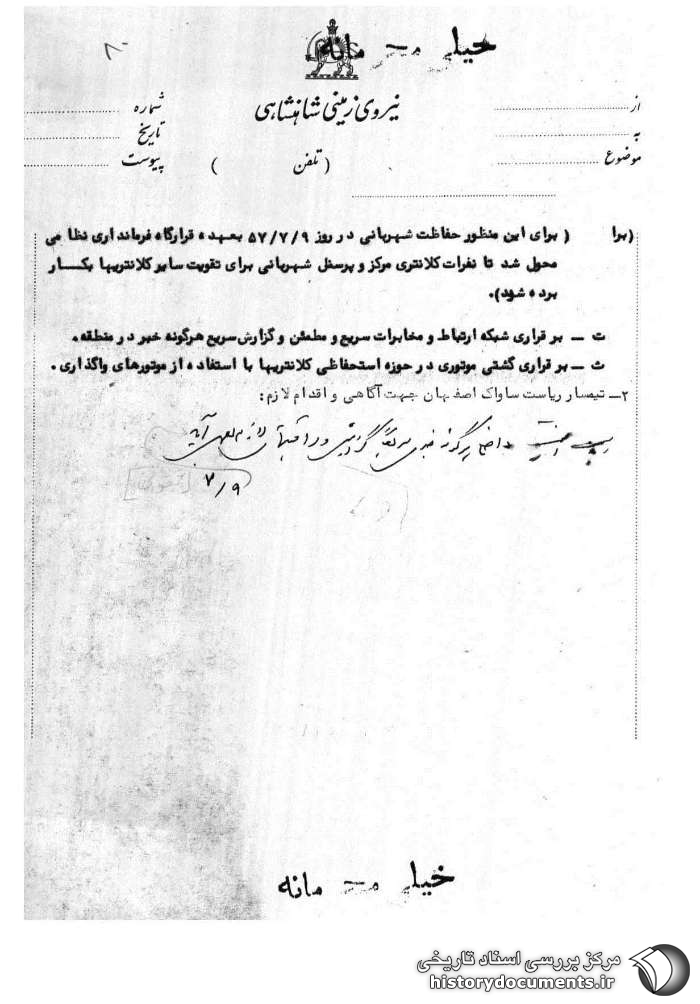 خیلی مح مانه
۸۰
نیروی زمینی شاهنشاهی
از
به
موضوع
شماره
تاریخ
پیوست
( تلفن )
(برا ( برای این منظور حفاظت شهربانی در روز ۵۷/۷/۹ بعهده قرارگاه فرمانداری نظا می
محول شد تا نفرات کلانتری مرکز و پرسنل شهربانی برای تقویت سایر کلانتریها بکـــار
برده شود).
ت ــ بر قراری شبکه ارتباط و مخابرات سریع و مطمئن و گزارش سریع هرگونه خبر در منطقه.
ث ــ بر قراری گشتی موتوری در حوزه استحفاظی کلانتریها با استفاده از موتورهای واگذاری.
۲ــ تیمسار ریاست ساواک اصفهان جهت آگاهی و اقدام لازم:
۷/۹
خیلی مح مانه
مرکز بررسی اسناد تاریخی
historydocuments.ir